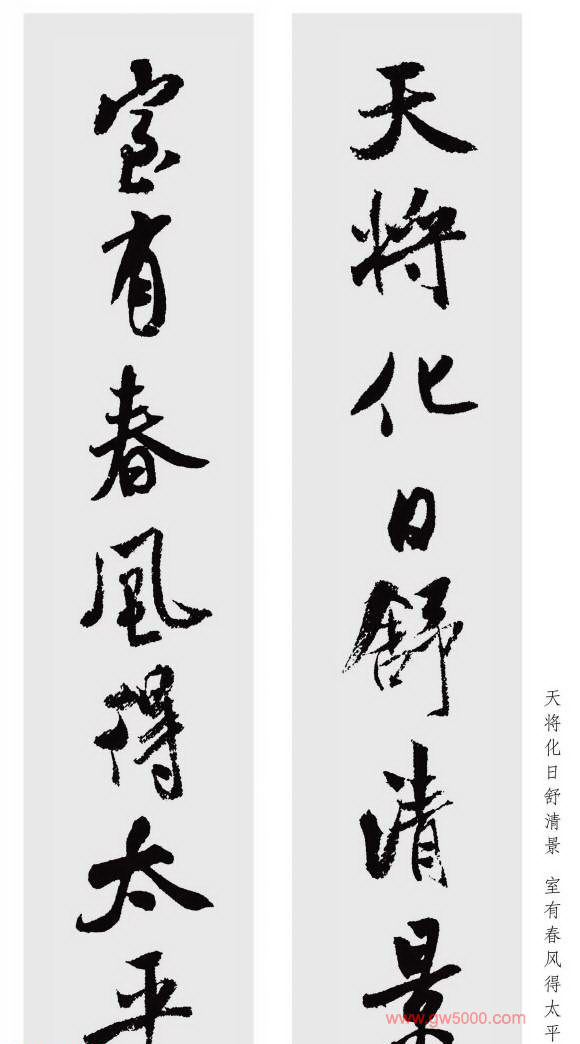 天将化日舒清景
室有春风得太平
天将化日舒清景 室有春风得太平
www.gw5000.com